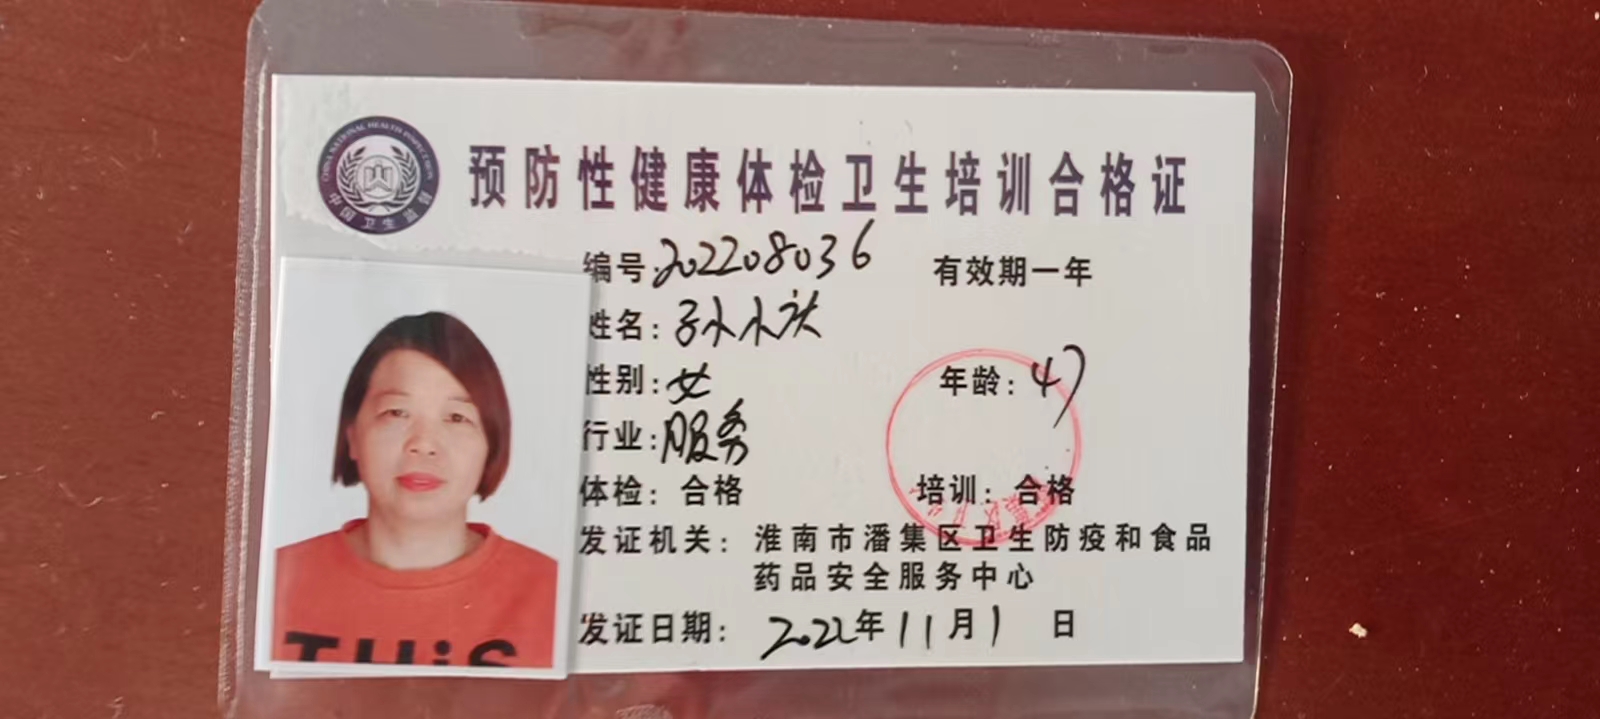 CHINA NATIONAL HEALTH INSPECTION
中国卫生监督
预防性健康体检卫生培训合格证
编号:202208036 有效期一年
姓名:孙小
性别:女 年龄:47
行业:服务
体检:合格 培训:合格
发证机关:淮南市潘集区卫生防疫和食品
药品安全服务中心
发证日期:2022年11月1日
THiS